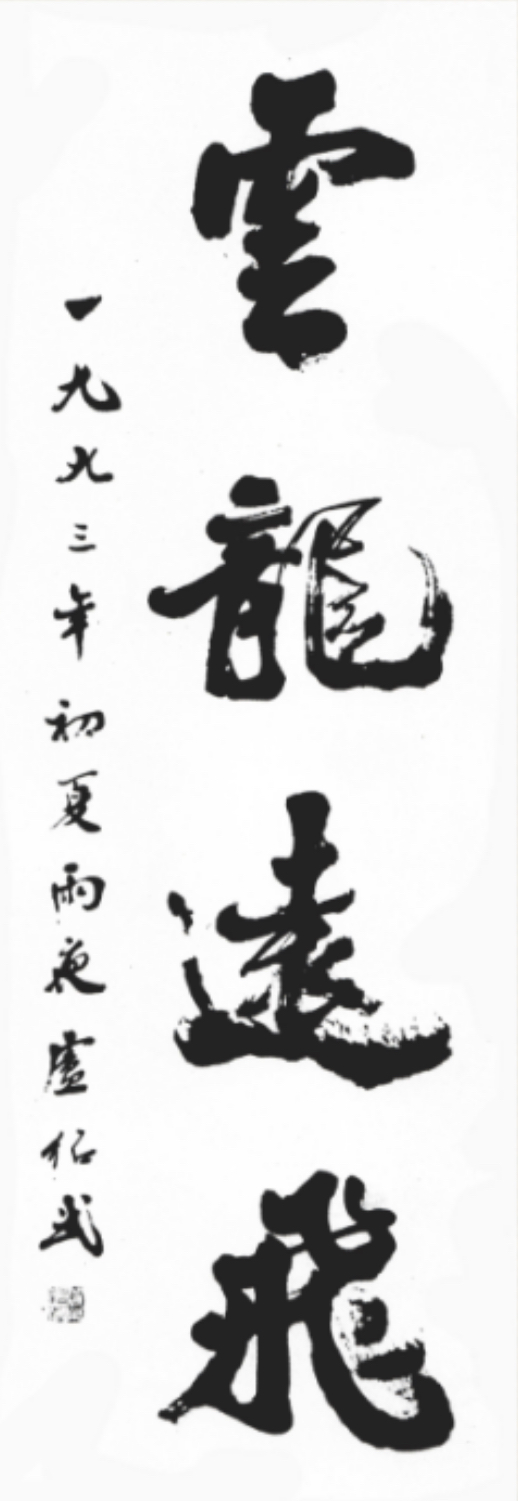 雲龍遠飛
一九九三年初夏雨夜盧紹武